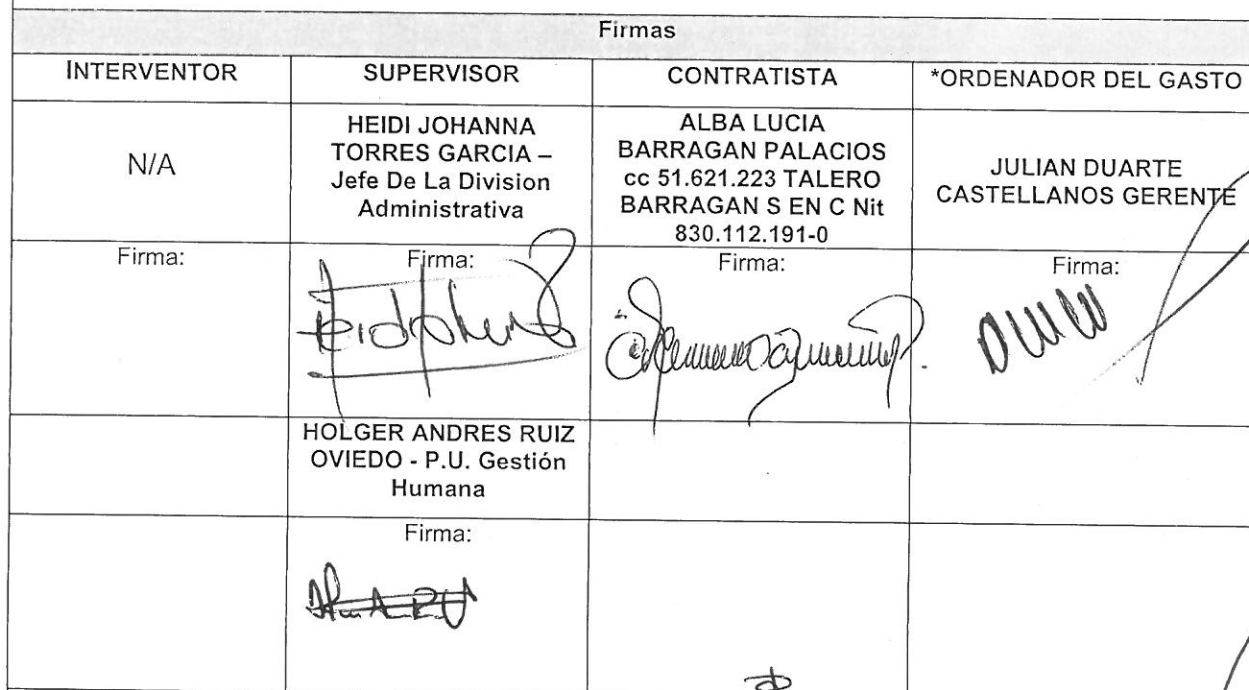 Firmas
INTERVENTOR
SUPERVISOR
CONTRATISTA
*ORDENADOR DEL GASTO
N/A
HEIDI JOHANNA
TORRES GARCIA –
Jefe De La Division
Administrativa
ALBA LUCIA
BARRAGAN PALACIOS
cc 51.621.223 TALERO
BARRAGAN S EN C Nit
830.112.191-0
JULIAN DUARTE
CASTELLANOS GERENTE
Firma:
Firma:
Firma:
Firma:
HOLGER ANDRES RUIZ
OVIEDO - P.U. Gestión
Humana
Firma: